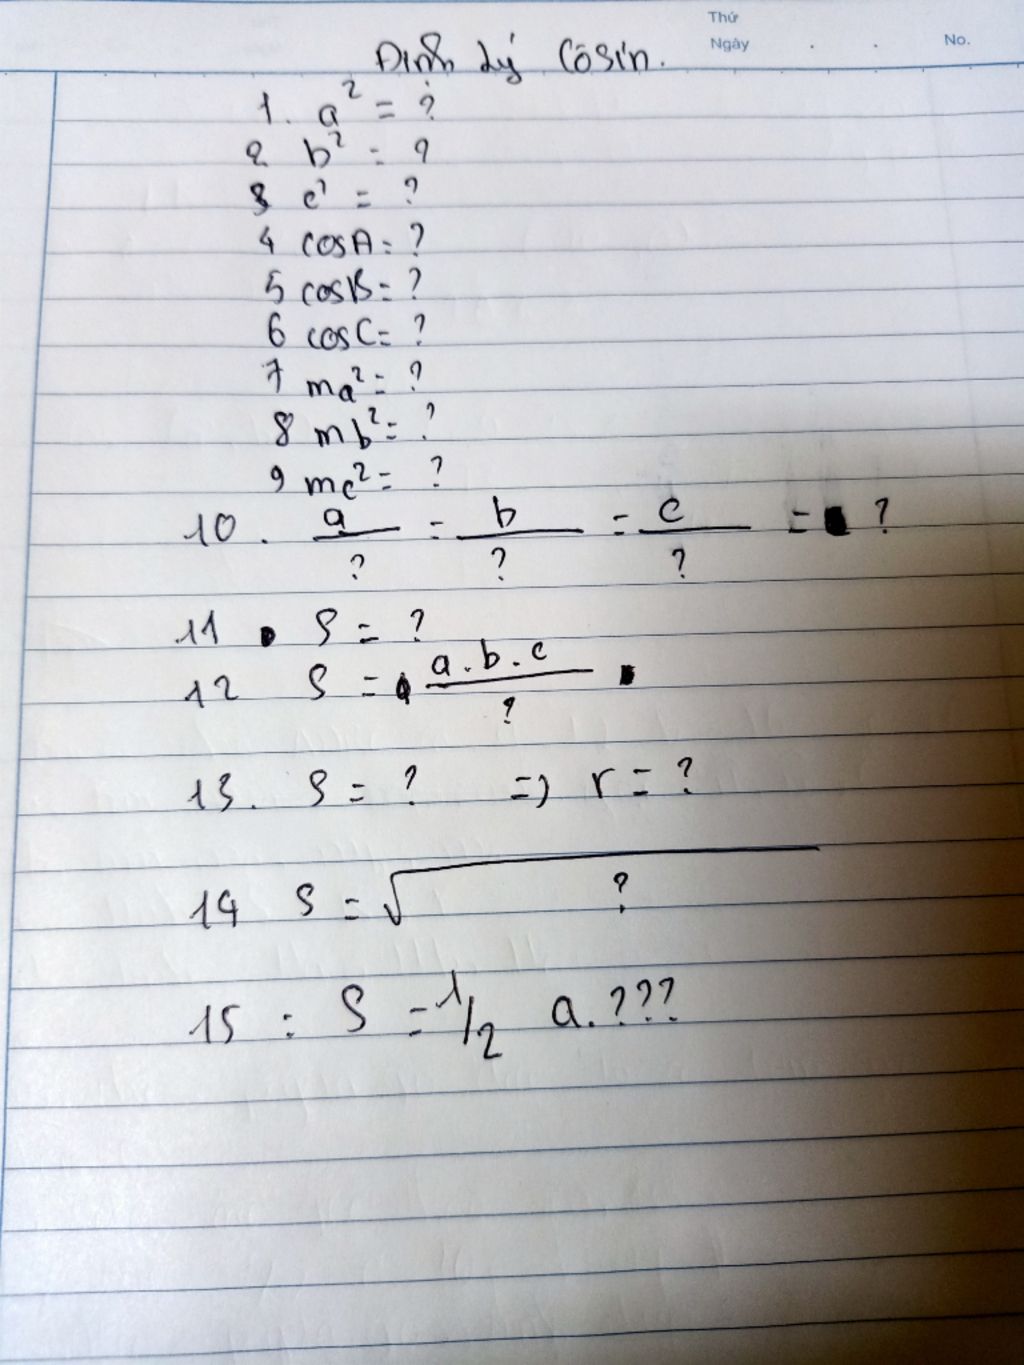 Thứ
Ngày . . No.
Định Lý Côsin.
1. a² = ?
2 b² = ?
3 c² = ?
4 cosA = ?
5 cosB = ?
6 cosC = ?
7 ma² = ?
8 mb² = ?
9 mc² = ?
10. a/? = b/? = c/? = ?
11. S = ?
12 S = a.b.c/?
13. S = ? => r = ?
14 S = √?
15 : S = 1/2 a.???